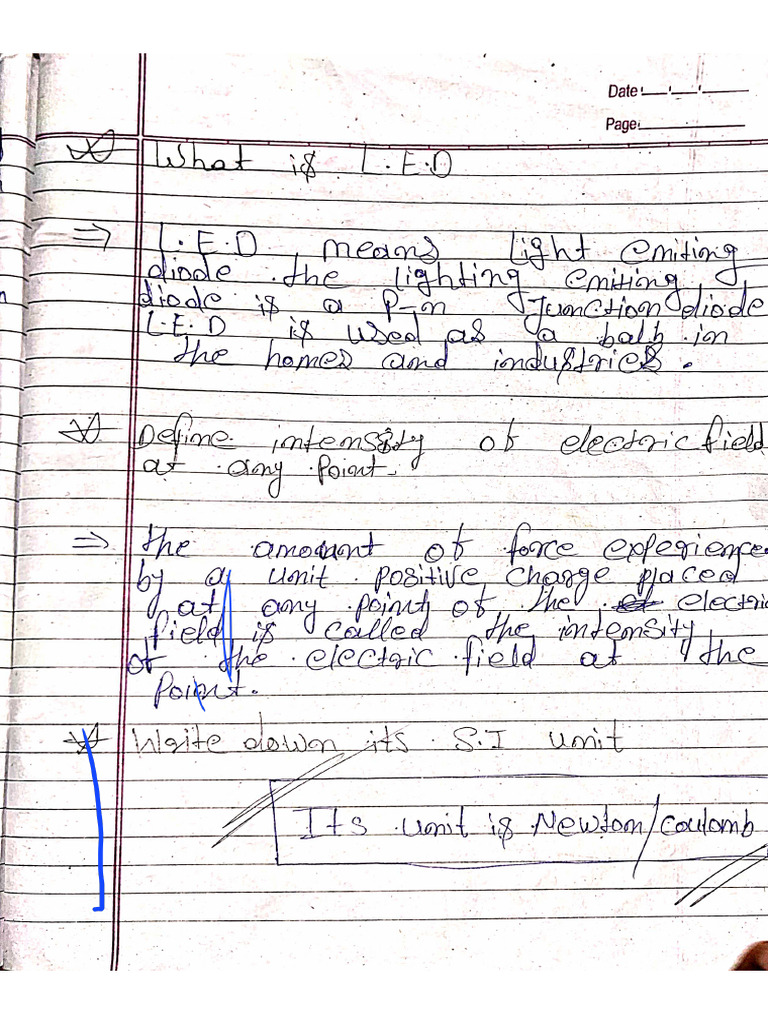 Date:
Page:
What is L.E.D
L.E.D means Light emiting
diode. the lighting emiting
diode is a P-n Junction diode
L.E.D is used as a balb in
the homes and industries.
Define intensity of electric field
at any point.
the amount of force experience
by a unit positive charge placed
at any point of the electric
field is called the intensity
of the electric field at the
Point.
Write down its S.I unit
Its unit is Newton/Coulomb